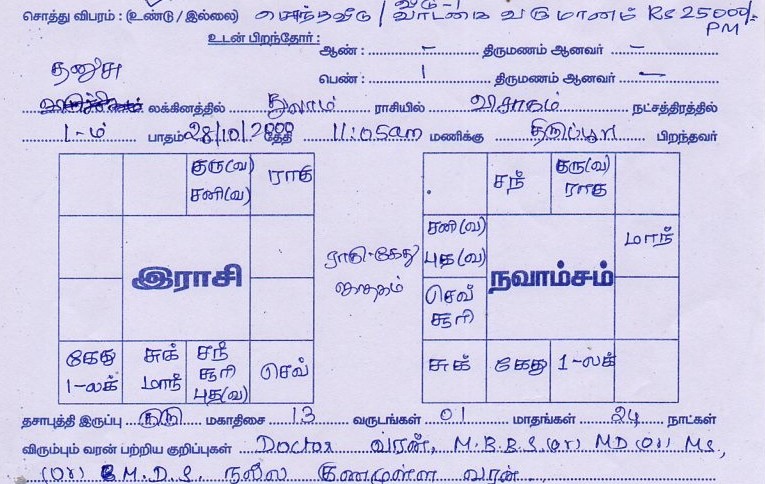 சொத்து விபரம் : (உண்டு / இல்லை) சொந்தவீடு / வீடு-1 வாடகை வருமானம் Rs 25000/- PM
உடன் பிறந்தோர் :
ஆண் : – திருமணம் ஆனவர் –
பெண் : 1 திருமணம் ஆனவர் –
தனுசு
லக்கினத்தில் துலாம் ராசியில் விசாகம் நட்சத்திரத்தில்
1-ம் பாதம் 28/10/2000 தேதி 11:05am மணிக்கு திருப்பூர் பிறந்தவர்
குரு(வ) ராகு
சனி(வ)
இராசி
கேது சுக் சந் செவ்
1-லக் மாந் சூரி
புத(வ)
ராகு-கேது
ஜாதகம்
சந் குரு(வ)
ராகு
சனி(வ) மாந்
புத(வ)
நவாம்சம்
செவ்
சூரி
சுக் கேது 1-லக்
தசாபுத்தி இருப்பு குரு மகாதிசை 13 வருடங்கள் 01 மாதங்கள் 24 நாட்கள்
விரும்பும் வரன் பற்றிய குறிப்புகள் Doctor வரன், M.B.B.S, (or) MD (or) Ms,
(or) B.M.D.S, நல்ல குணமுள்ள வரன்